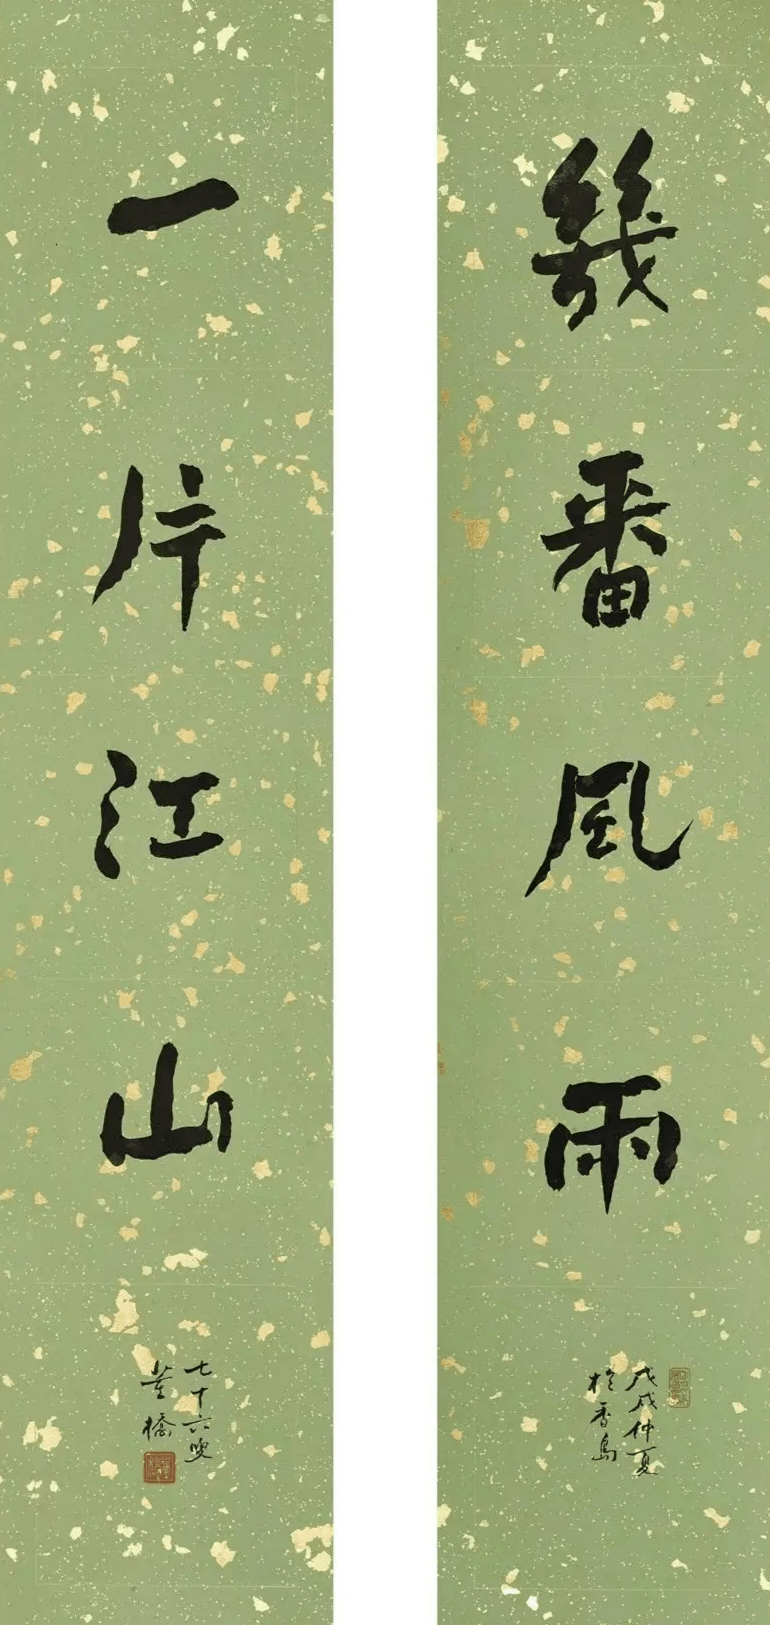 幾番風雨
戊戌仲夏
於香島
一片江山
七十六叟
董橋